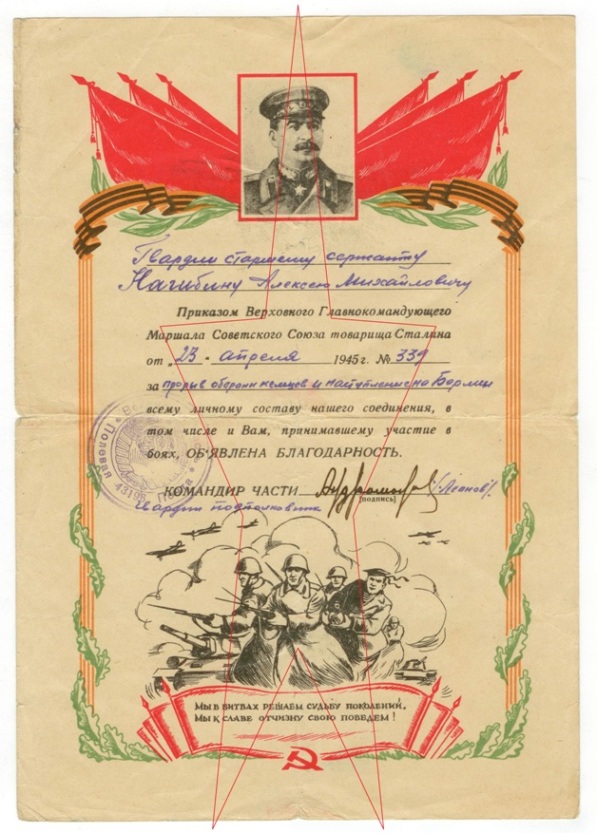 Гвардии старшему сержанту
Нагибину Алексею Михайловичу
Приказом Верховного Главнокомандующего
Маршала Советского Союза товарища Сталина
от „23 апреля 1945 г. № 339
за прорыв обороны немцев и наступление на Берлин
всему личному составу нашего соединения, в
том числе и Вам, принимавшему участие в
боях, ОБ'ЯВЛЕНА БЛАГОДАРНОСТЬ.
Полевая
43198
КОМАНДИР ЧАСТИ
[подпись]
Гвардии подполковник
МЫ В БИТВАХ РЕШАЕМ СУДЬБУ ПОКОЛЕНИЙ,
МЫ К СЛАВЕ ОТЧИЗНУ СВОЮ ПОВЕДЕМ!